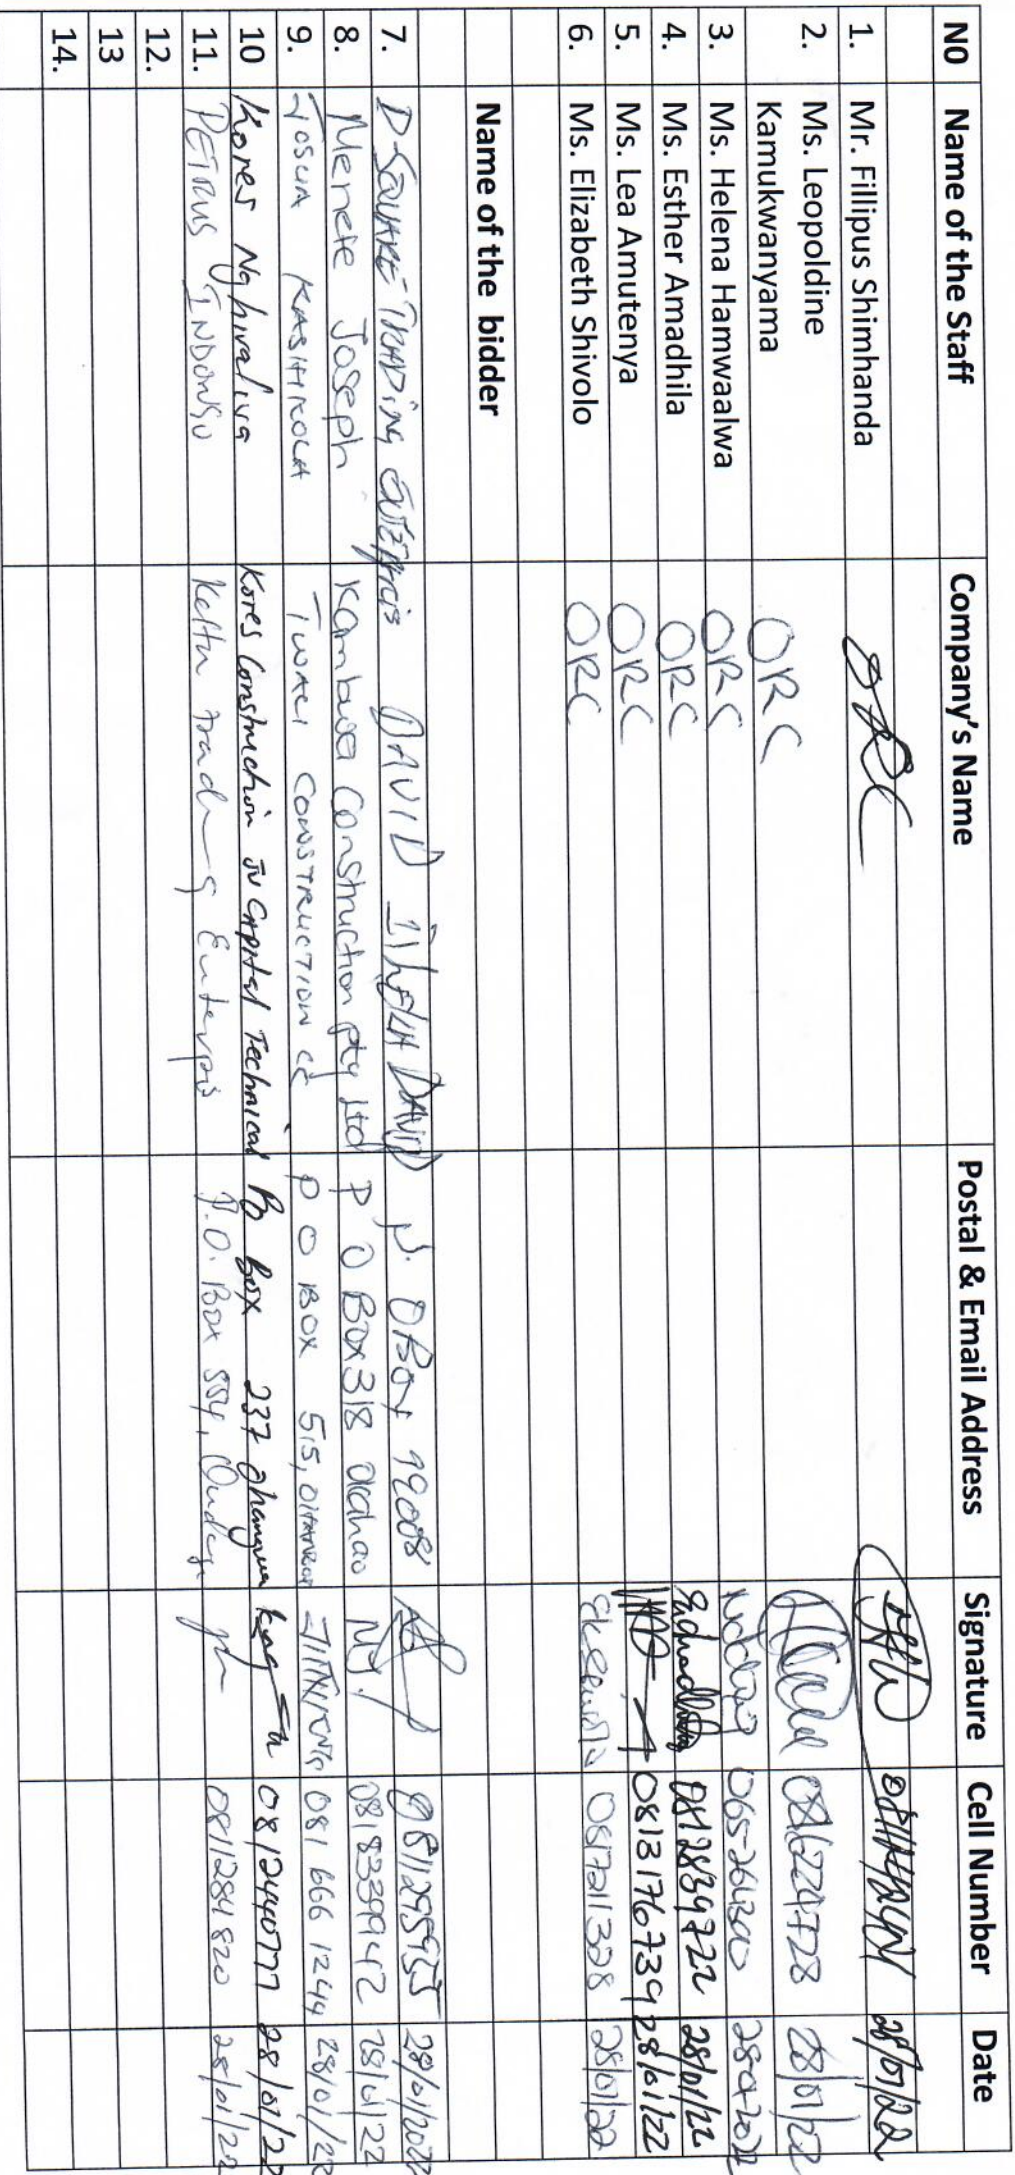 N0 Name of the Staff Company's Name Postal & Email Address Signature Cell Number Date
1. Mr. Fillipus Shimhanda ORC 28/01/22
2. Ms. Leopoldine Kamukwanyama ORC 28/01/22
3. Ms. Helena Hamwaalwa ORC 065-264300 28-01-2022
4. Ms. Esther Amadhila ORC 0812839722 28/01/22
5. Ms. Lea Amutenya ORC 0813176739 28/01/22
6. Ms. Elizabeth Shivolo ORC 0817211308 28/01/22
Name of the bidder
7. D SQUARE TRADING DAVID DAVID P. O Box 28/01/2022
8. Menete Joseph Kambwa Construction pty Ltd P O Box 318 0818339942 28/01/22
9. CONSTRUCTION CC P O BOX 515, 081 666 1244 28/01/22
10 Kores Nghivalwa Kores Construction JV Capital Technical Po Box 237 0812440777 28/01/22
11. PETRUS INDONGO Trading P.O. Box 554, 0811284820 28/01/22
12.
13
14.